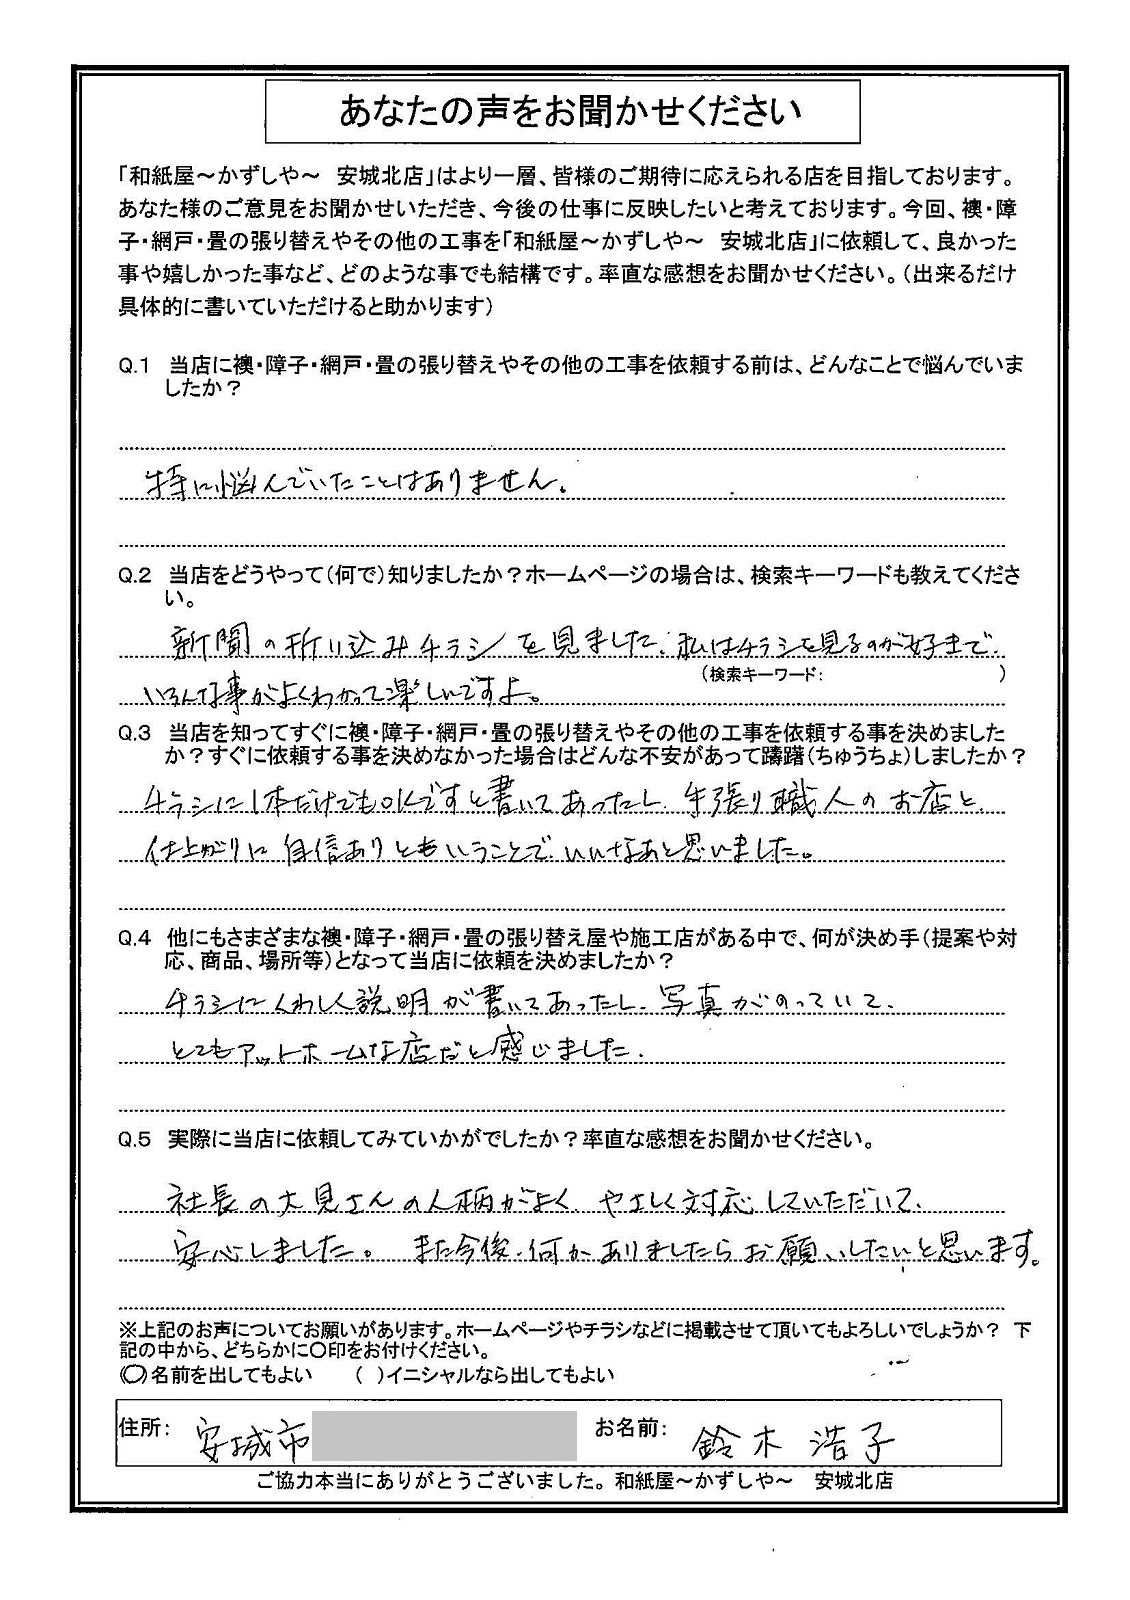 あなたの声をお聞かせください
「和紙屋～かずしや～　安城北店」はより一層、皆様のご期待に応えられる店を目指しております。
あなた様のご意見をお聞かせいただき、今後の仕事に反映したいと考えております。今回、襖・障
子・網戸・畳の張り替えやその他の工事を「和紙屋～かずしや～　安城北店」に依頼して、良かった
事や嬉しかった事など、どのような事でも結構です。率直な感想をお聞かせください。（出来るだけ
具体的に書いていただけると助かります）
Q.1　当店に襖・障子・網戸・畳の張り替えやその他の工事を依頼する前は、どんなことで悩んでいま
したか？
特に悩んでいたことはありません。
Q.2　当店をどうやって（何で）知りましたか？ホームページの場合は、検索キーワードも教えてくださ
い。
新聞の折り込みチラシを見ました。私はチラシを見るのが好きで、
（検索キーワード：　　　　　　　　　　）
いろんな事がよくわかって楽しいですよ。
Q.3　当店を知ってすぐに襖・障子・網戸・畳の張り替えやその他の工事を依頼する事を決めました
か？すぐに依頼する事を決めなかった場合はどんな不安があって躊躇（ちゅうちょ）しましたか？
チラシに1本だけでもOKですと書いてあったし、手張り職人のお店と、
仕上がりに自信ありともいうことで、いいなあと思いました。
Q.4　他にもさまざまな襖・障子・網戸・畳の張り替え屋や施工店がある中で、何が決め手（提案や対
応、商品、場所等）となって当店に依頼を決めましたか？
チラシにくわしく説明が書いてあったし、写真がのっていて、
とてもアットホームな店だと感じました。
Q.5　実際に当店に依頼してみていかがでしたか？率直な感想をお聞かせください。
社長の大見さんの人柄がよく、やさしく対応していただいて、
安心しました。また今後、何かありましたらお願いしたいと思います。
※上記のお声についてお願いがあります。ホームページやチラシなどに掲載させて頂いてもよろしいでしょうか？　下
記の中から、どちらかに〇印をお付けください。
（〇）名前を出してもよい　　（　）イニシャルなら出してもよい
住所：　安城市　　お名前：　鈴木 浩子
ご協力本当にありがとうございました。和紙屋～かずしや～　安城北店